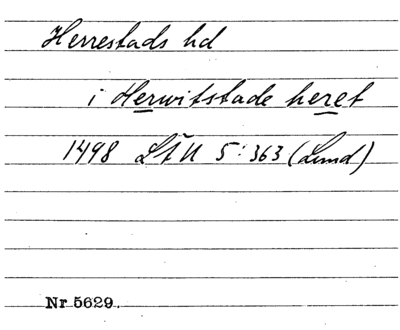 Herrestads hd
i Herwitstade heret
1498 LÄU 5:363 (Lund)
Nr 5629.